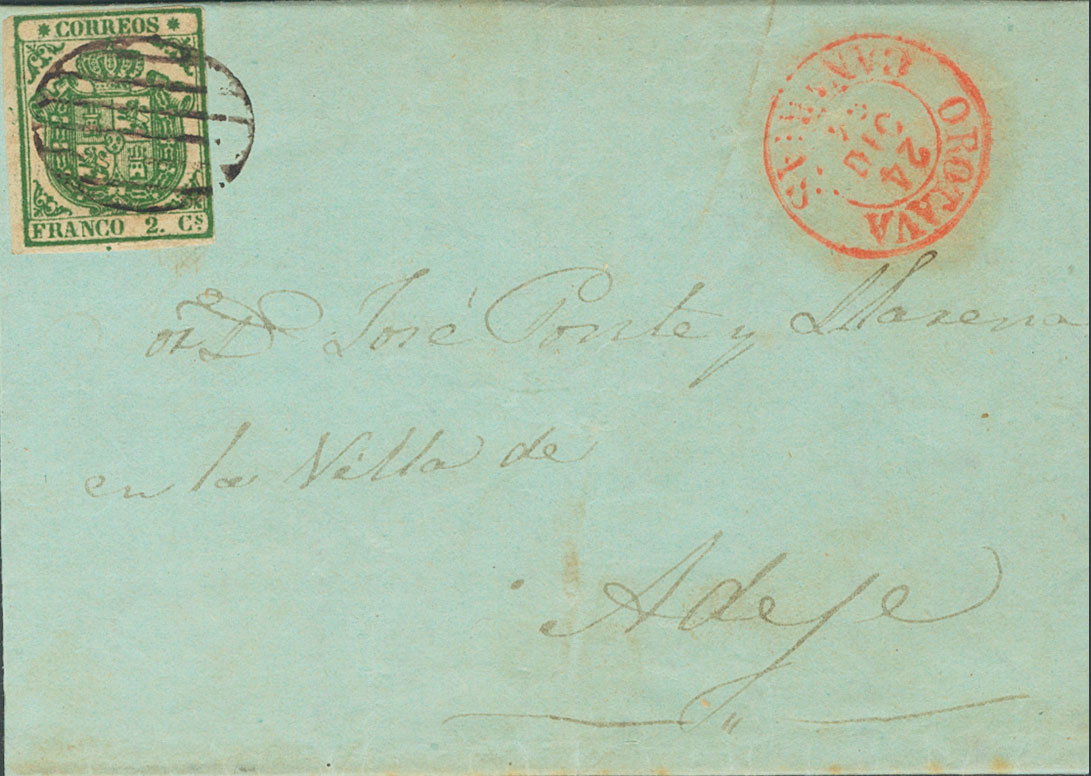 * CORREOS *
FRANCO 2. Cs
OROTAVA
CANARIAS
24
DIC
D José Ponte y Llarena
en la Villa de
Adeje